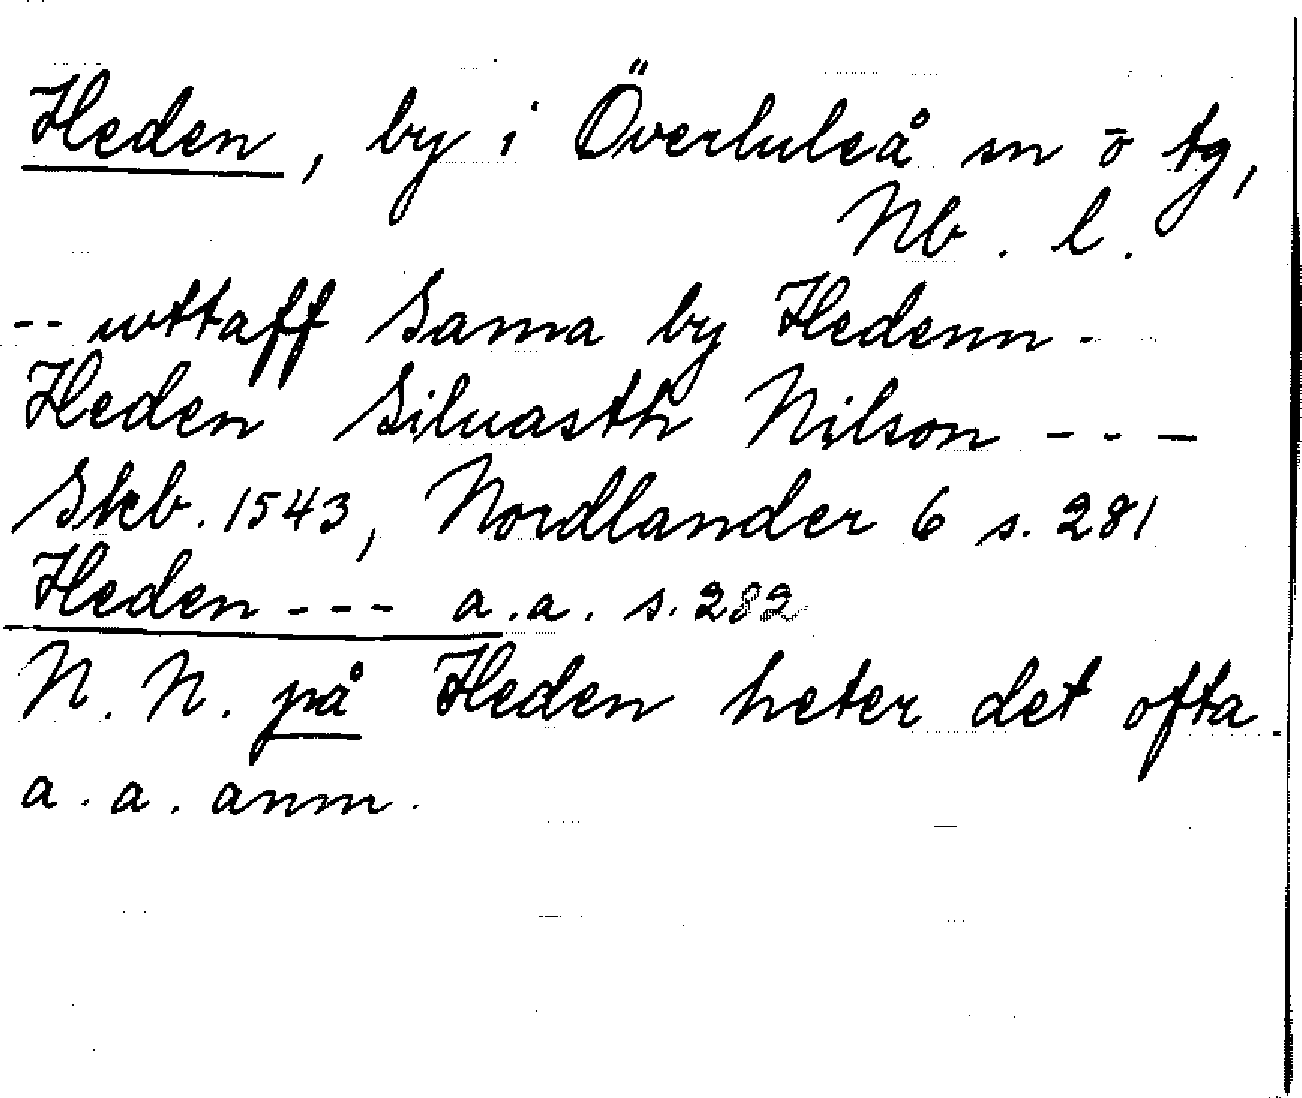 Heden, by i Överluleå sn o tg,
Nb. l.
-- wttaff Sama by Hedenn -
Heden Siluasth Nilson ---
Skb. 1543, Nordlander 6 s. 281
Heden --- a.a. s. 282
N. N. på Heden heter det ofta.
a.a. anm.